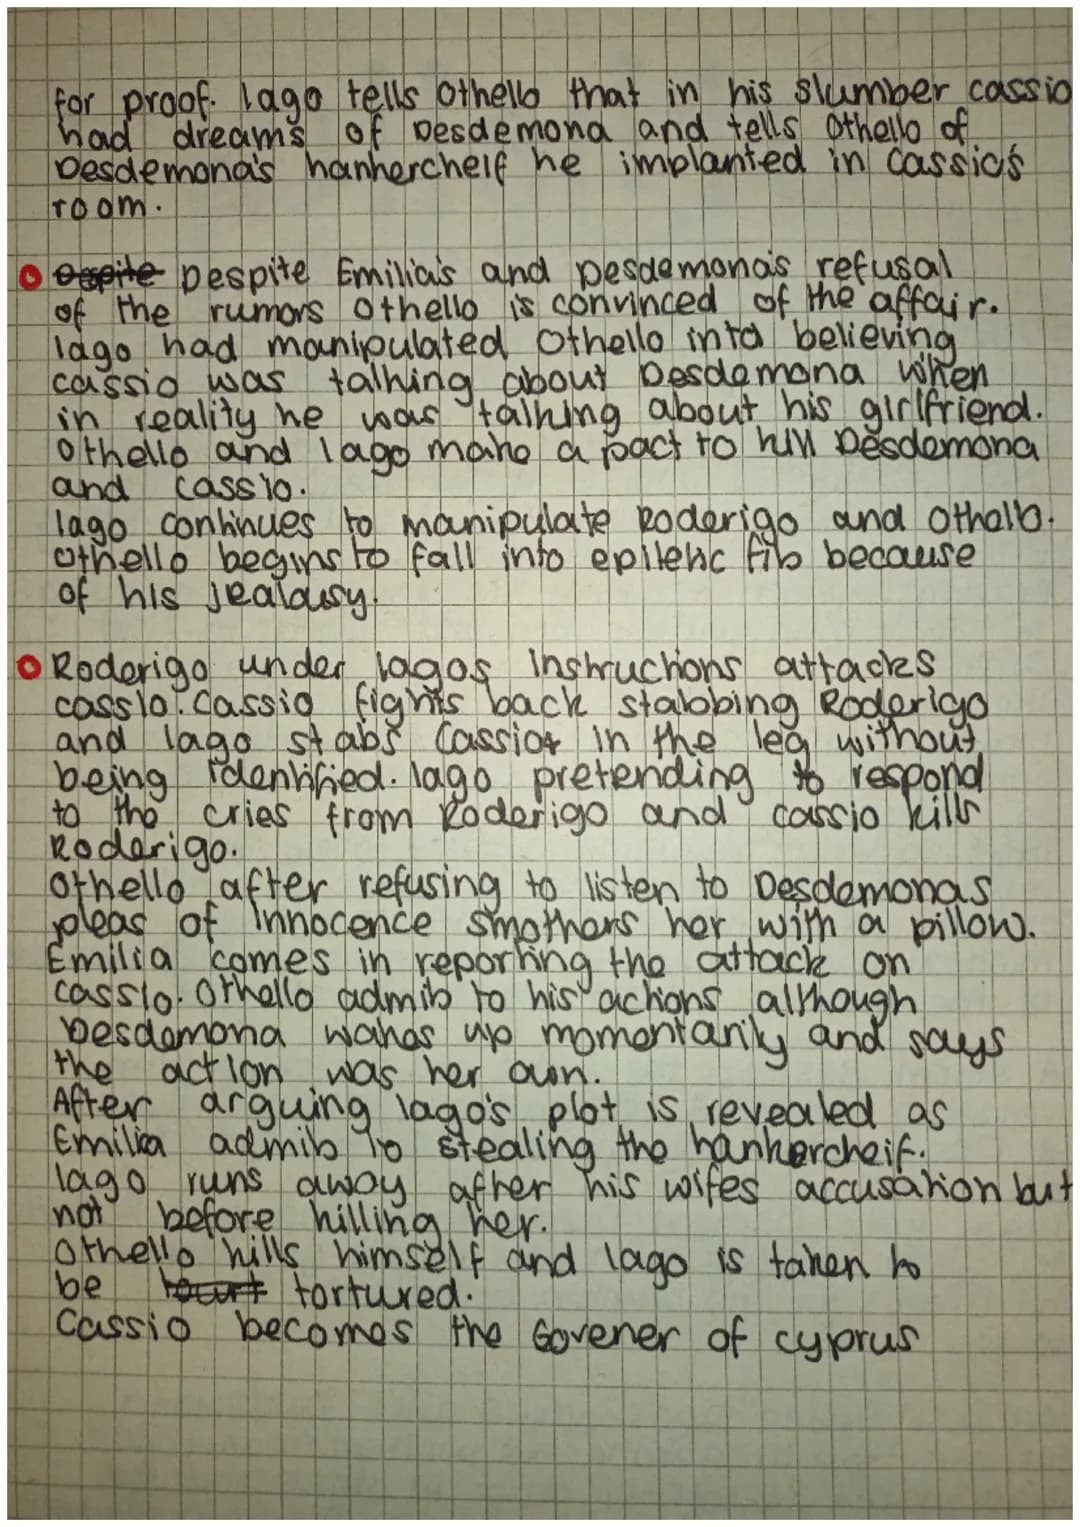 for proof. Iago tells Othello that in his slumber cassio
had dreams of Desdemona and tells Othello of
Desdemona's hankercheif he implanted in Cassio's
room.
Despite Despite Emilia's and Desdemona's refusal
of the rumors Othello is convinced of the affair.
Iago had manipulated Othello into believing
cassio was talking about Desdemona when
in reality he was talking about his girlfriend.
Othello and Iago make a pact to kill Desdemona
and Cassio.
Iago continues to manipulate Roderigo and Othello.
Othello begins to fall into epiletic fits because
of his jealousy.
Roderigo under Iagos Instructions attacks
cassio. Cassio fights back stabbing Roderigo
and Iago stabs Cassio in the leg without
being identified. Iago pretending to respond
to the cries from Roderigo and cassio kills
Roderigo.
Othello after refusing to listen to Desdemonas
pleas of innocence smothers her with a pillow.
Emilia comes in reporting the attack on
Cassio. Othello admits to his actions although
Desdemona wakes up momentarily and says
the action was her own.
After arguing Iago's plot is revealed as
Emilia admits to stealing the hankercheif.
Iago runs away after his wifes accusation but
not before killing her.
Othello kills himself and Iago is taken to
be tortured.
Cassio becomes the Govener of cyprus